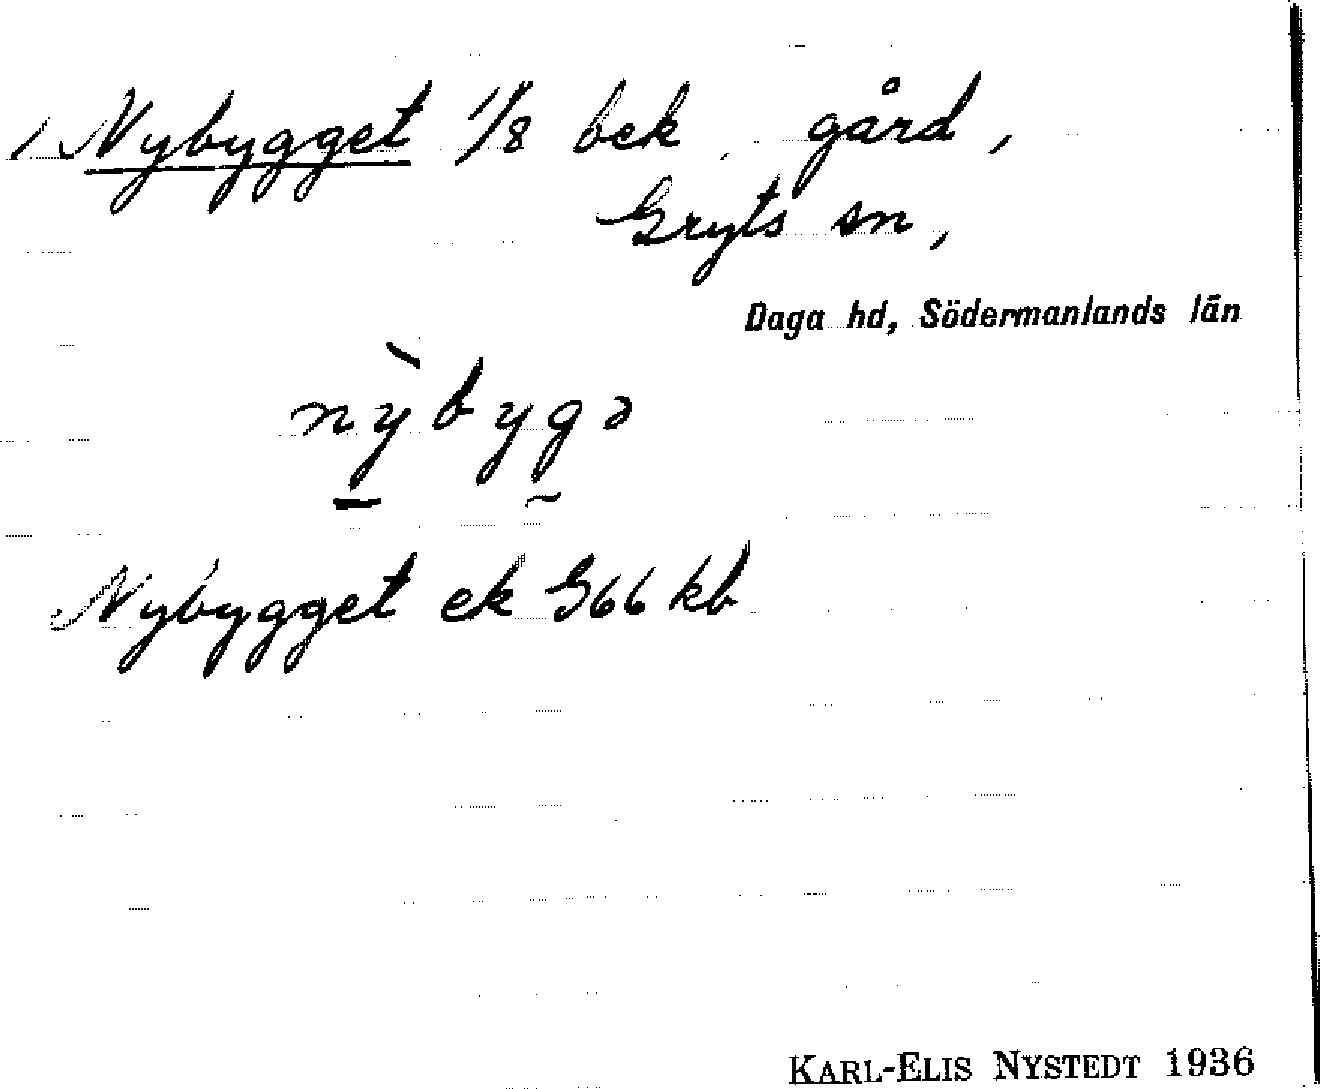 / Nybygget 1/8 bek, gård,
Gryts sn,
Daga hd, Södermanlands län
nỳbygə
Nybygget ek G66 kb
KARL-ELIS NYSTEDT 1936